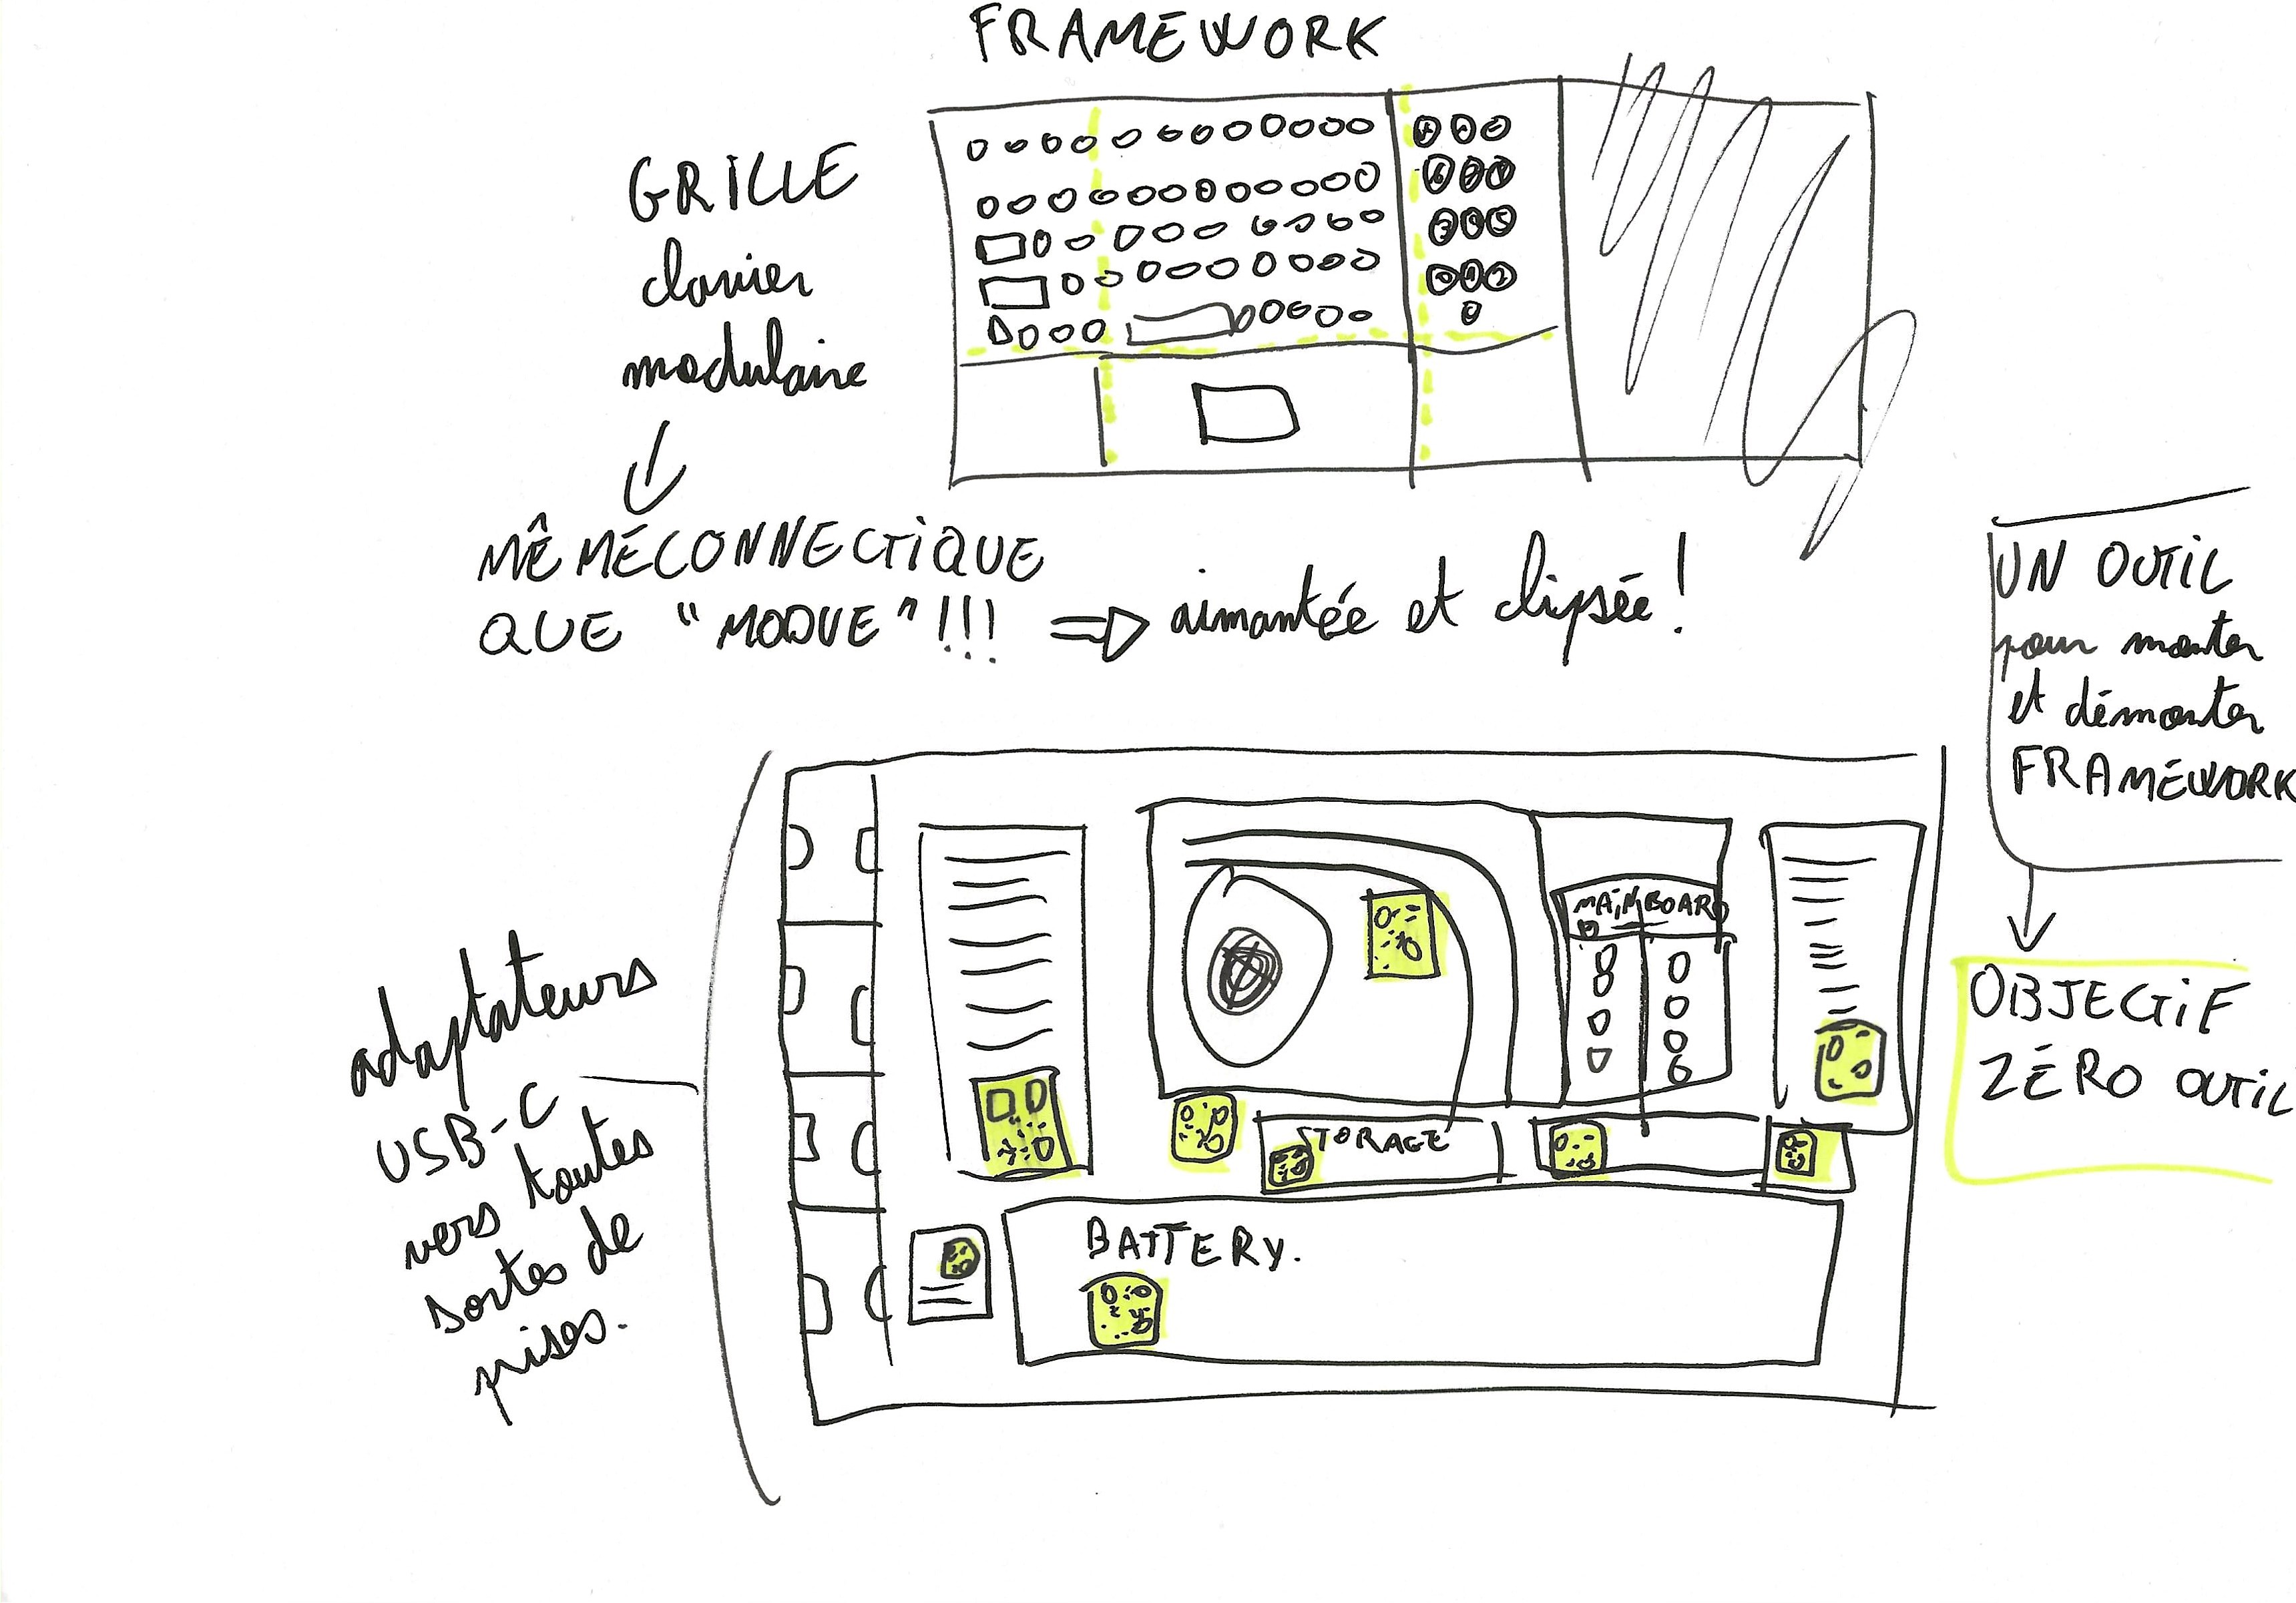 FRAMEWORK
GRILLE
clavier
modulaire
MÊME CONNECTIQUE
QUE "MODUE"!!! ⇒ aimantée et clipsée!
UN OUTIL
pour monter
et démonter
FRAMEWORK
OBJECTIF
ZÉRO OUTIL
adaptateurs
USB-C
vers toutes
sortes de
prises.
MAINBOARD
STORAGE
BATTERY.